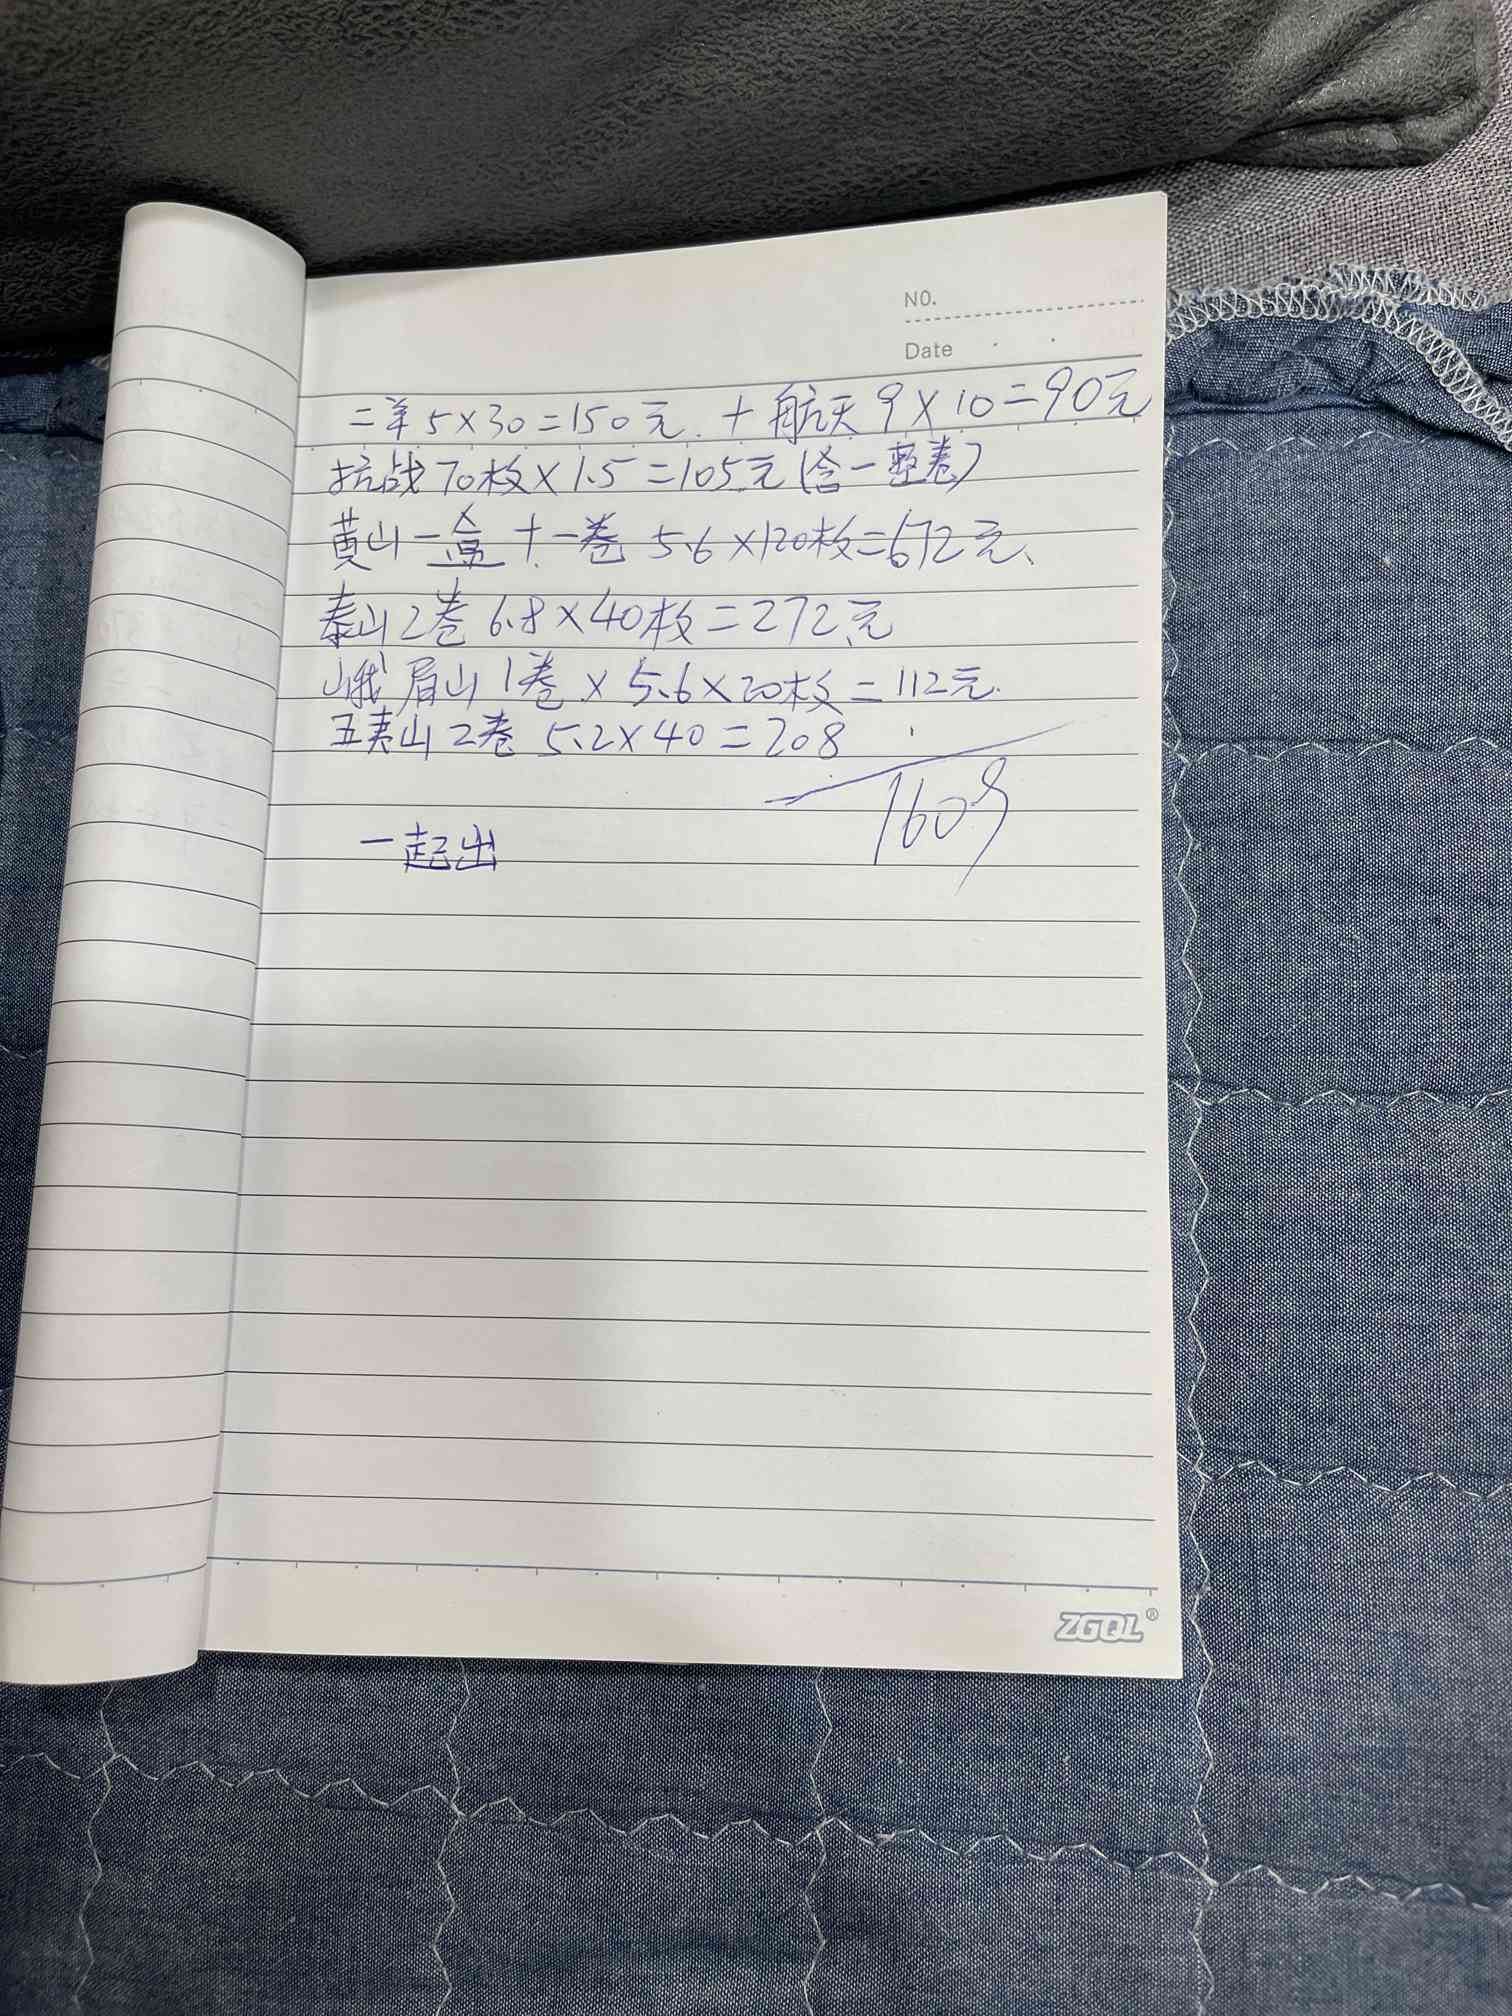 NO.
Date
二羊 5×30=150元. + 航天 9×10=90元
抗战 70枚×1.5=105元(含一整卷)
黄山一盒+一卷 5.6×120枚=672元、
泰山2卷 6.8×40枚=272元
峨眉山1卷×5.6×20枚=112元.
五夷山2卷 5.2×40=208
1609
一起出
ZGQL®